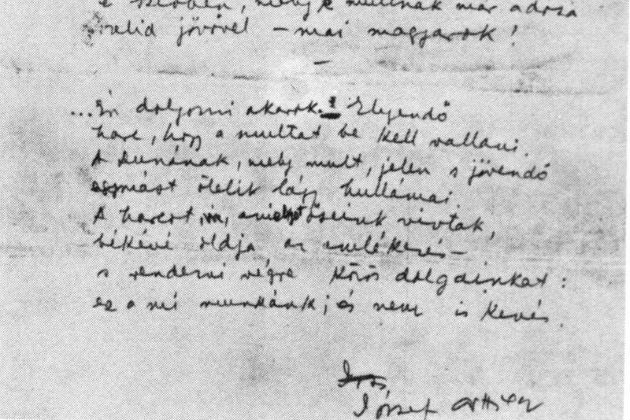 e szívben, mely e multnak már adósa
szelid jövővel – mai magyarok!
–
...Én dolgozni akarok. Elegendő
harc, hogy a multat be kell vallani.
A Dunának, mely mult, jelen s jövendő
egymást ölelik lágy hullámai.
A harcot, amelyet őseink vivtak,
békévé oldja az emlékezés –
s rendezni végre közös dolgainkat:
ez a mi munkánk; és nem is kevés.
József Attila